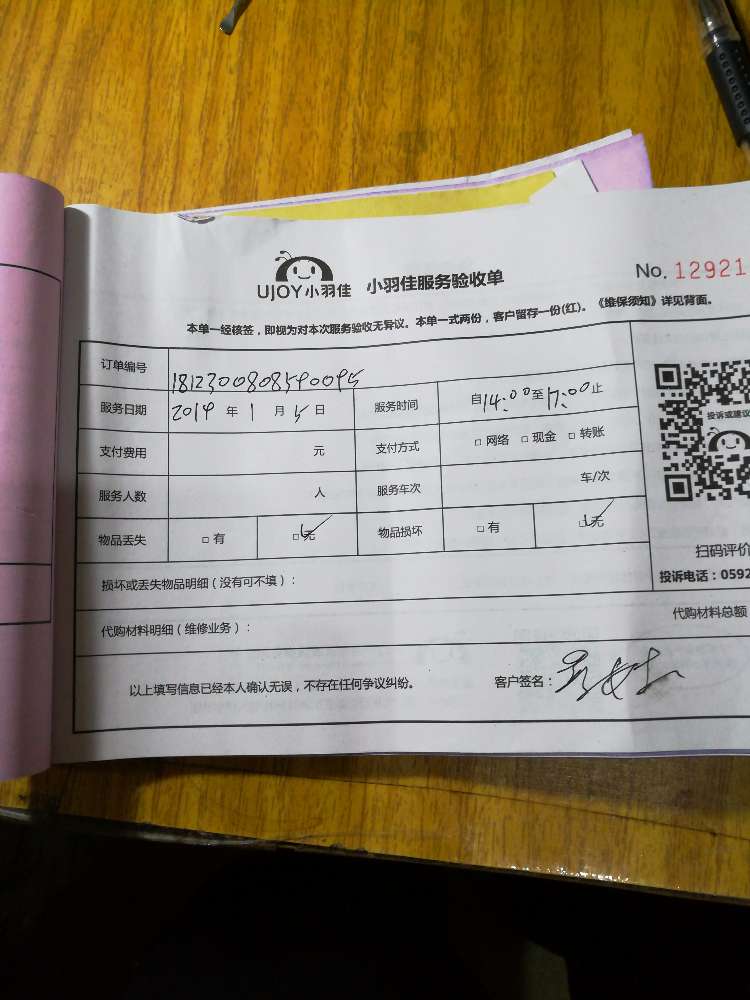 UJOY小羽佳 小羽佳服务验收单 No. 12921
本单一经核签，即视为对本次服务验收无异议。本单一式两份，客户留存一份(红)。《维保须知》详见背面。
订单编号 1812300808590095
服务日期 2019 年 1 月 5 日 服务时间 自14:00至17:00止
支付费用 元 支付方式 □ 网络 □ 现金 □ 转账
服务人数 人 服务车次 车/次
物品丢失 □ 有 □ 无 物品损坏 □ 有 □ 无
投诉或建议
扫码评价
投诉电话：0592
损坏或丢失物品明细（没有可不填）：
代购材料明细（维修业务）： 代购材料总额
以上填写信息已经本人确认无误，不存在任何争议纠纷。 客户签名：